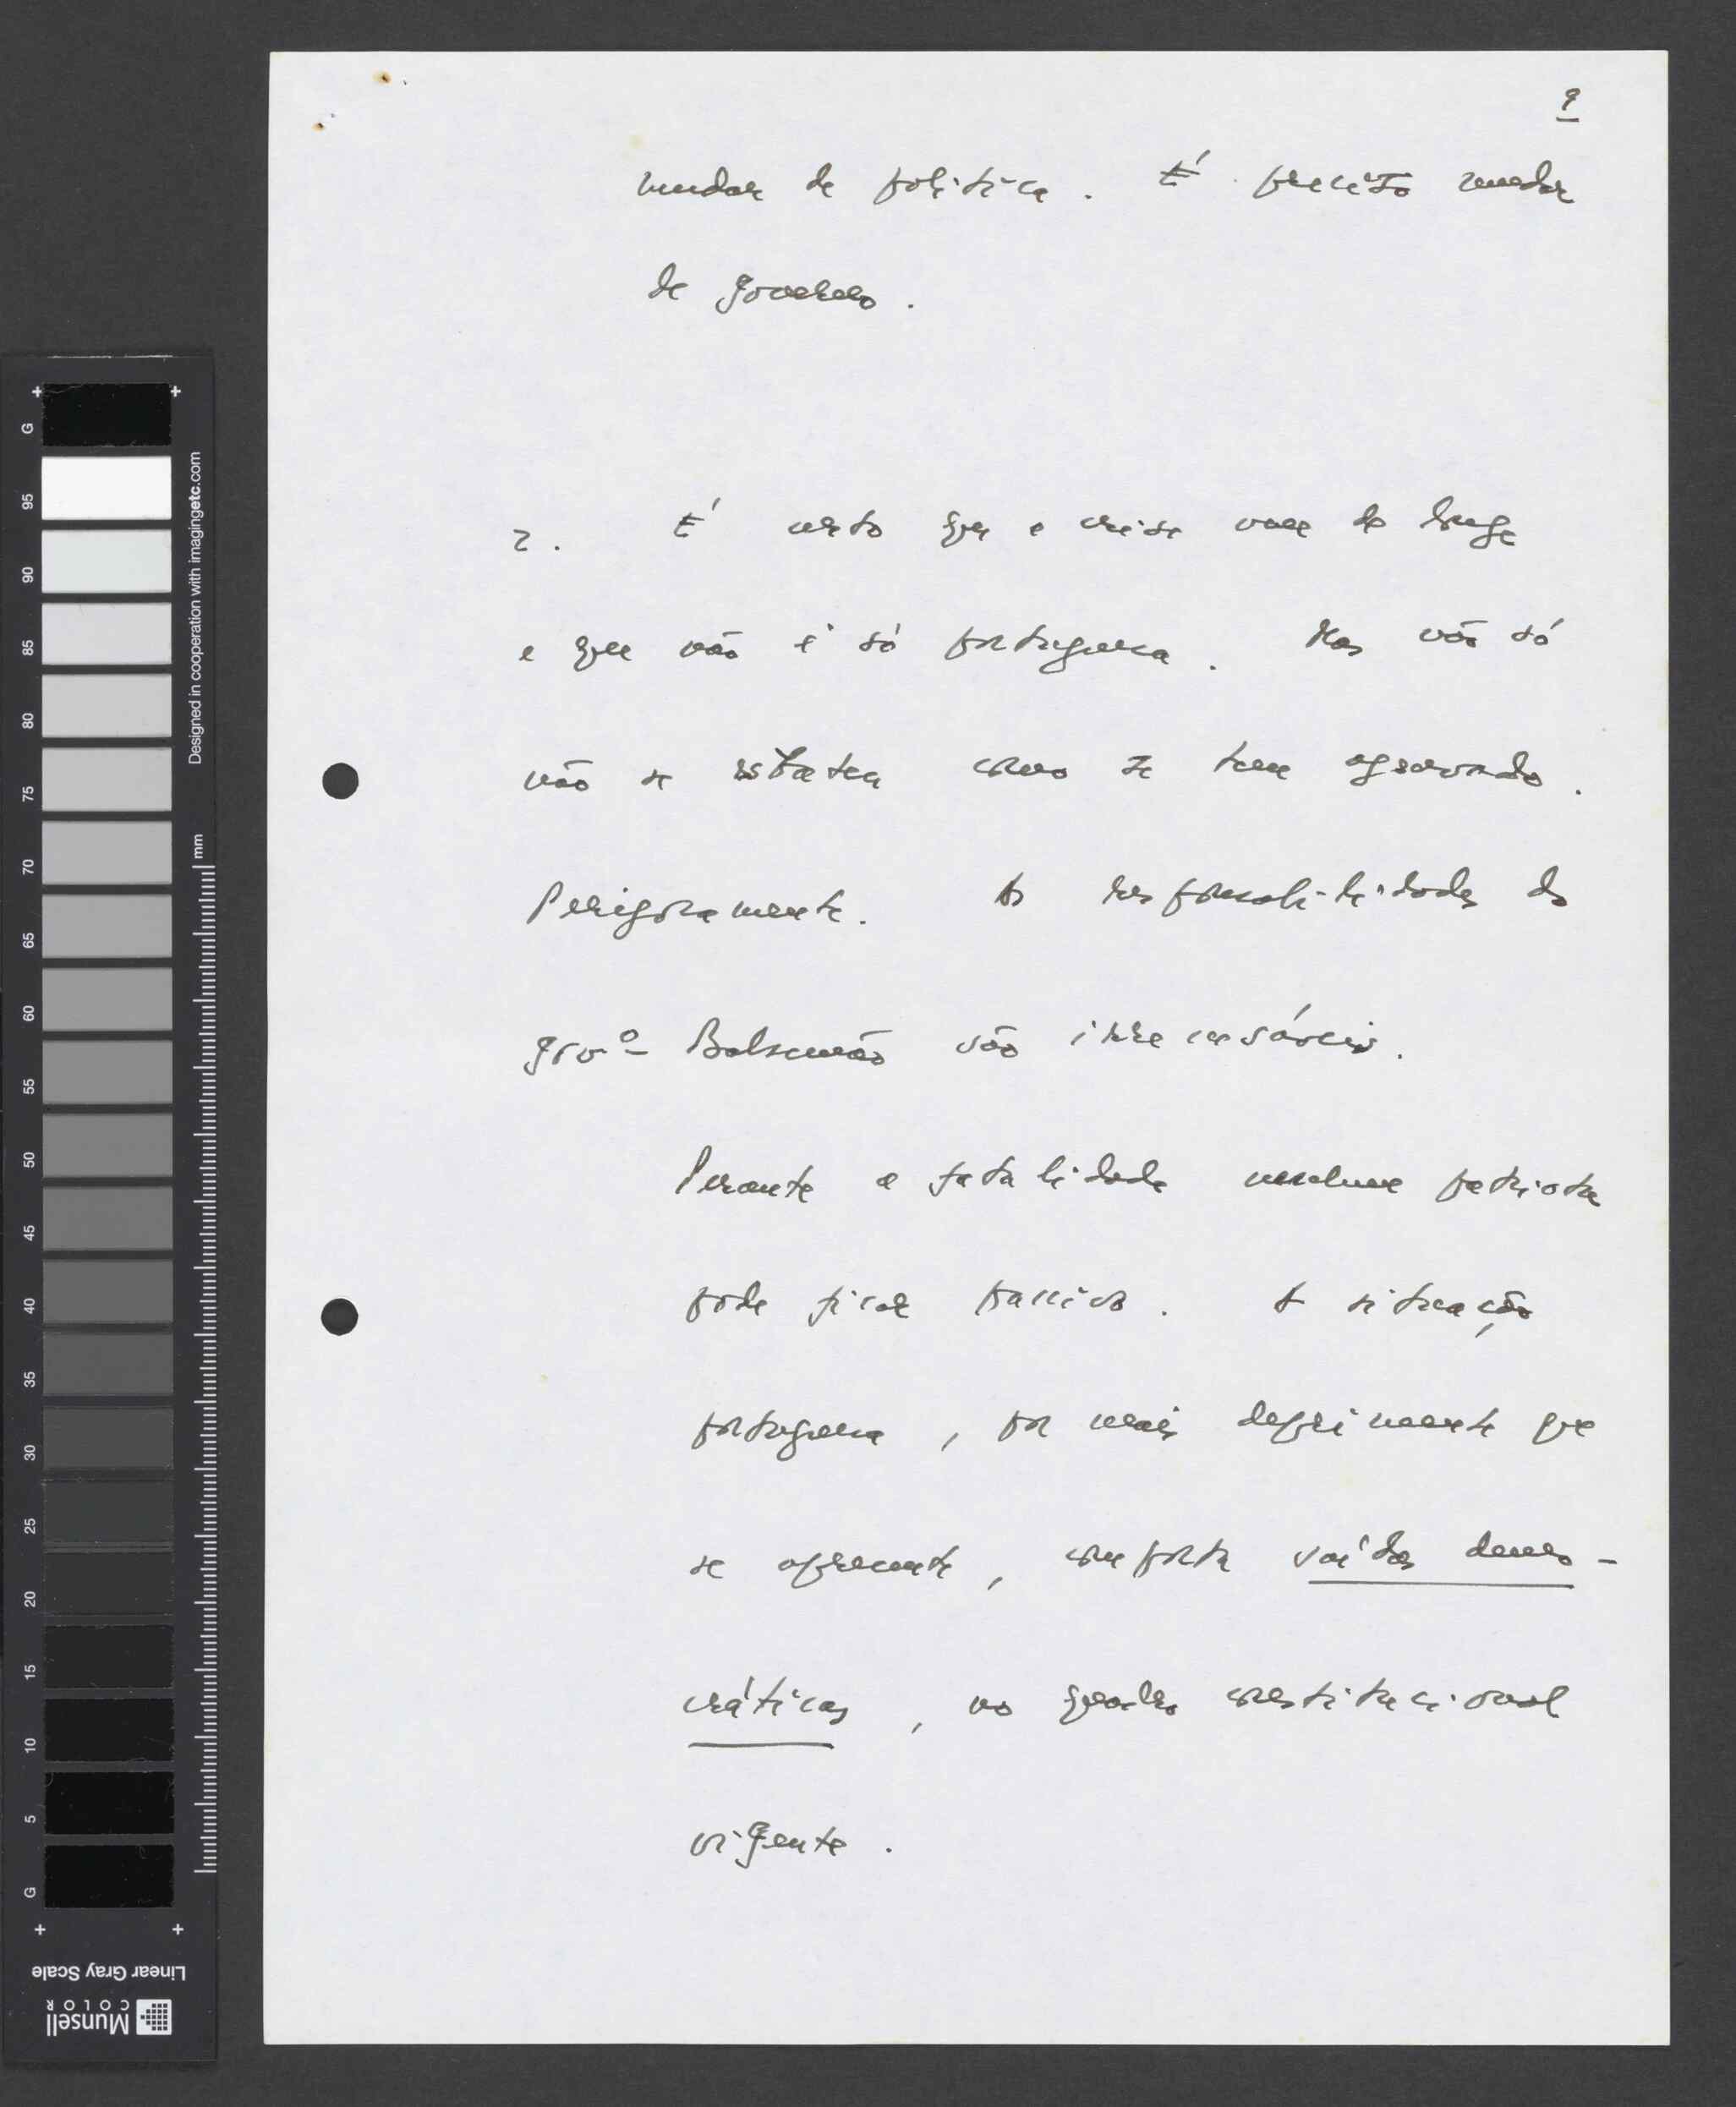 9
mudar de política. É preciso mudar
de governo.
2. É certo que a crise vem de longe
e que não é só portuguesa. Mas não só
não se estatea como se tem agravado.
Perigosamente. As responsabilidades do
govº Balsemão são irrecusáveis.
Perante a fatalidade nenhum patriota
pode ficar passivo. A situação
portuguesa, por mais deprimente que
se apresente, comporta saídas demo-
cráticas, no quadro constitucional
vigente.
G
95
90
85
80
75
70
65
60
55
50
45
40
35
30
25
20
15
10
5
G
Designed in cooperation with imagingetc.com
mm
Linear Gray Scale
Munsell
COLOR